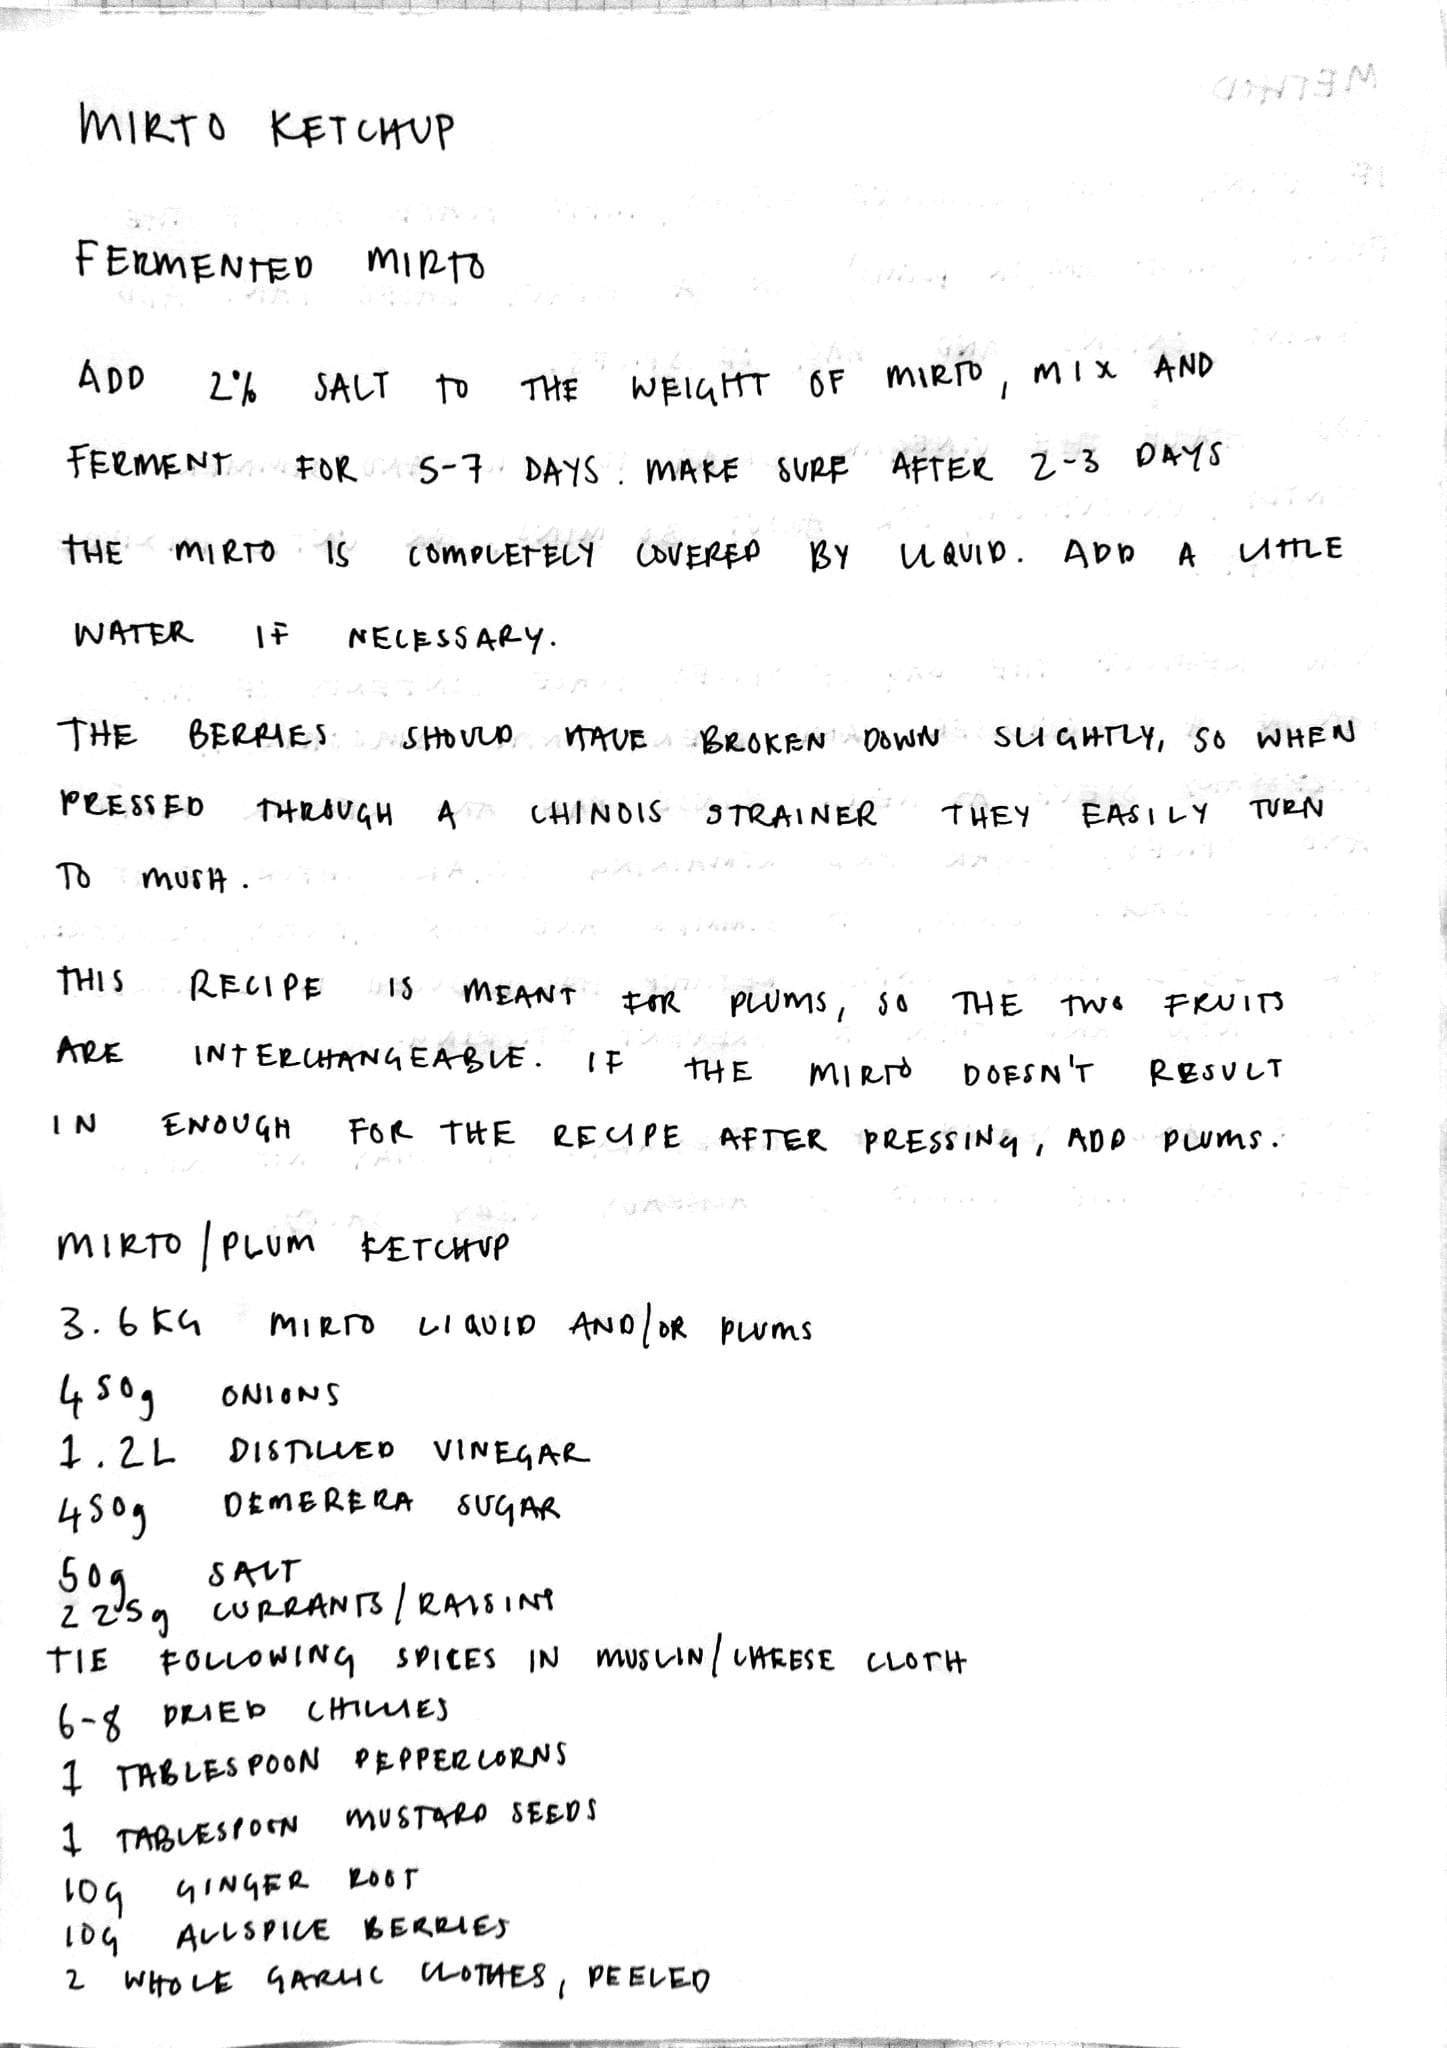 MIRTO KETCHUP
FERMENTED MIRTO
ADD 2% SALT TO THE WEIGHT OF MIRTO, MIX AND
FERMENT FOR 5-7 DAYS. MAKE SURE AFTER 2-3 DAYS
THE MIRTO IS COMPLETELY COVERED BY LIQUID. ADD A LITTLE
WATER IF NECESSARY.
THE BERRIES SHOULD HAVE BROKEN DOWN SLIGHTLY, SO WHEN
PRESSED THROUGH A CHINOIS STRAINER THEY EASILY TURN
TO MUSH.
THIS RECIPE IS MEANT FOR PLUMS, SO THE TWO FRUITS
ARE INTERCHANGEABLE. IF THE MIRTO DOESN'T RESULT
IN ENOUGH FOR THE RECIPE AFTER PRESSING, ADD PLUMS.
MIRTO/PLUM KETCHUP
3.6KG MIRTO LIQUID AND/OR PLUMS
450g ONIONS
1.2L DISTILLED VINEGAR
450g DEMERERA SUGAR
50g SALT
225g CURRANTS/RAISINS
TIE FOLLOWING SPICES IN MUSLIN/CHEESE CLOTH
6-8 DRIED CHILLIES
1 TABLESPOON PEPPERCORNS
1 TABLESPOON MUSTARD SEEDS
10G GINGER ROOT
10G ALLSPICE BERRIES
2 WHOLE GARLIC CLOTHES, PEELED